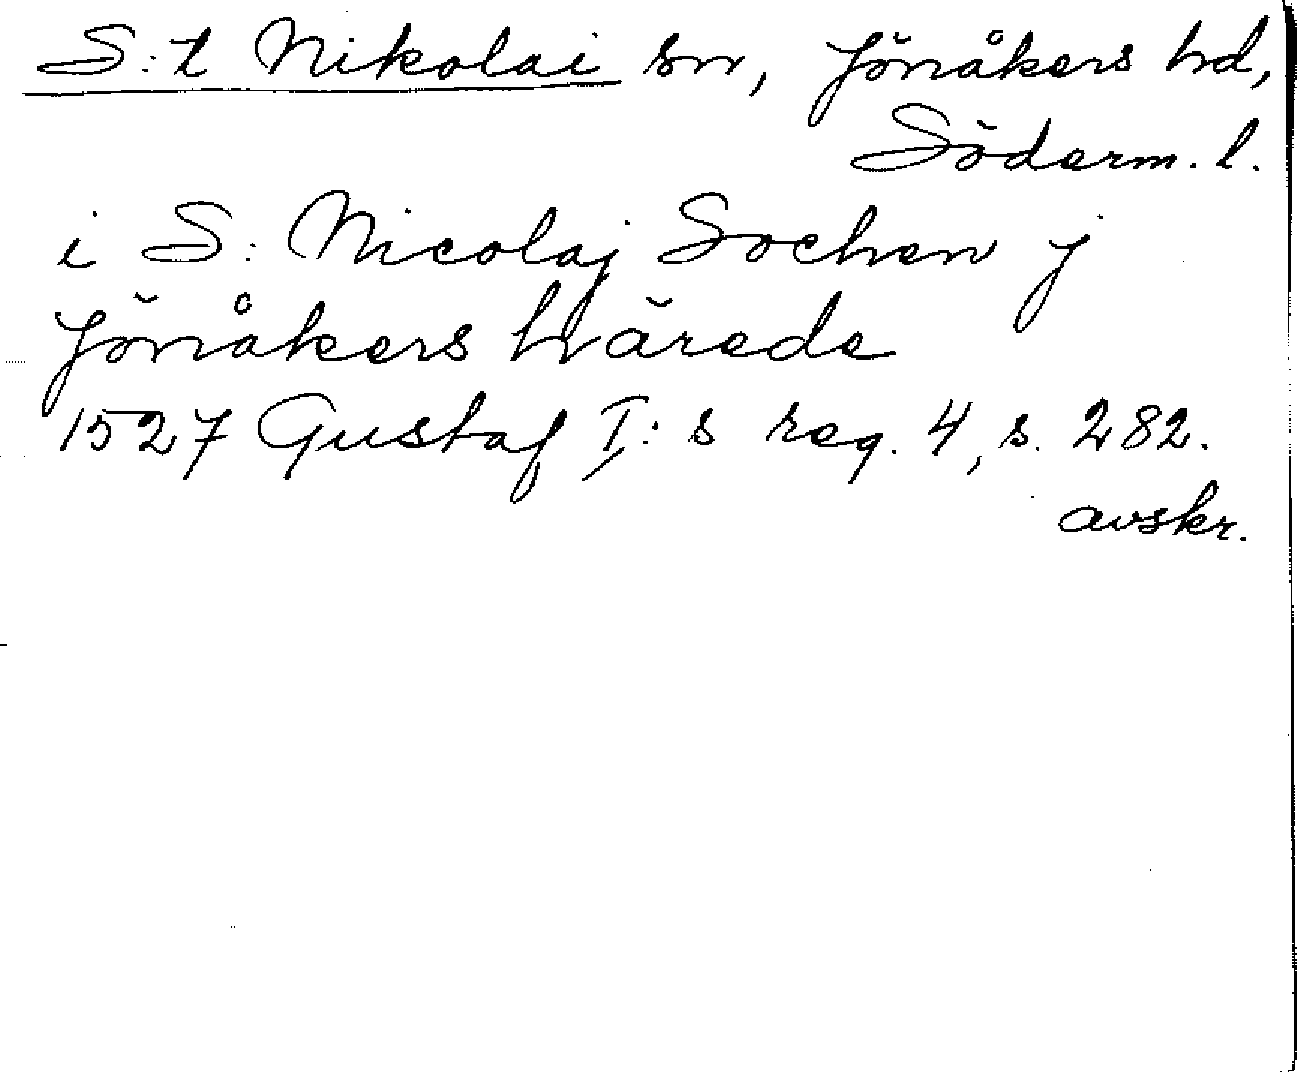 S:t Nikolai sn, Jönåkers hd,
Söderm. l.
i S: Nicolaj Sochen j
Jönåkers härede
1527 Gustaf I:s reg. 4, s. 282.
avskr.